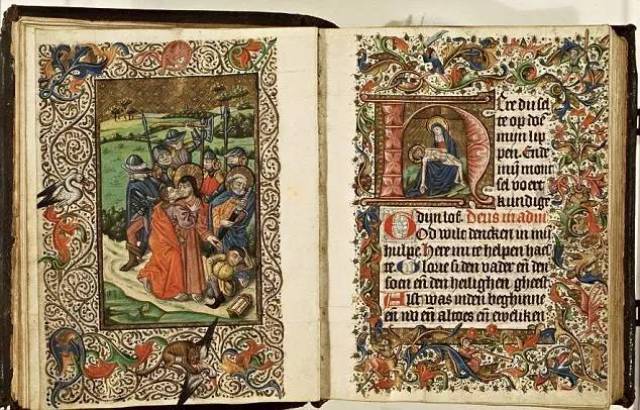 Ere du sel
te op doē
mijn lip
pen. Ende
mijn mont
sel voert
kundigē
Odijn lof. Deus in adiu
God wilt dencken in mij
hulpe Here mi te helpen haest
te Glorie si den vader eñ den
soen eñ den heilighen gheest
Als't was inden beghinne
eñ nv eñ altoes eñ eweliken